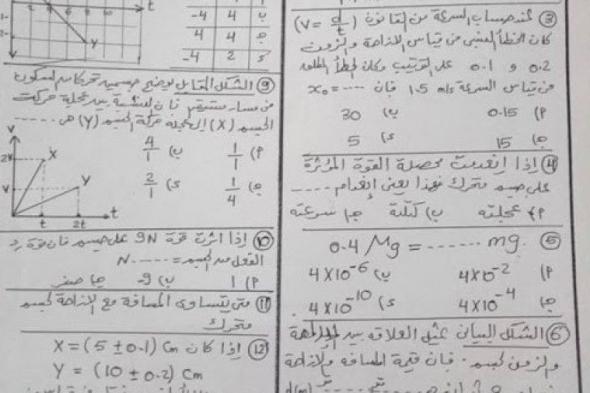 ③ عند حساب السرعة من القانون (V = d/t)
كان الخطأ النسبي في قياس الإزاحة والزمن
0.2 و 0.1 على الترتيب وكان الخطأ المطلق
في قياس السرعة 1.5 m/s فإن x₀ = ....
(P 0.15 (ب 30
(جـ 15 (د 5
④ إذا انعدمت محصلة القوة المؤثرة
على جسم متحرك فهذا يعني انعدام ....
(P عجلته (ب كتلته (جـ سرعته
⑤ 0.4 Mg = ....... mg.
(P 4×10⁻² (ب 4×10⁻⁶
(جـ 4×10⁻⁴ (د 4×10⁻¹⁰
⑥ الشكل البياني يمثل العلاقة بين الإزاحة
والزمن لجسم. فإن قيمة المسافة والإزاحة
d(m)
t
2 4 6 8
-1
-2
Y
ب 4 -4
جـ 4 4
د 2 -4
⑨ الشكل المقابل يوضح جسمين تحركا من السكون
في مسار مستقيم فإن النسبة بين عجلة حركة
الجسم (X) إلى عجلة حركة الجسم (Y) هي ......
(P 1/1 (ب 4/1
(جـ 1/4 (د 2/1
V
2V
V
X
Y
t 2t t
⑩ إذا أثرت قوة 9N على جسم فإن قوة رد
الفعل من الجسم = ....... N
(P 1 (ب -9 (جـ صفر
⑪ متى يتساوى المسافة مع الإزاحة لجسم
متحرك
⑫ إذا كان X = (5 ± 0.1) Cm
Y = (10 ± 0.2) Cm